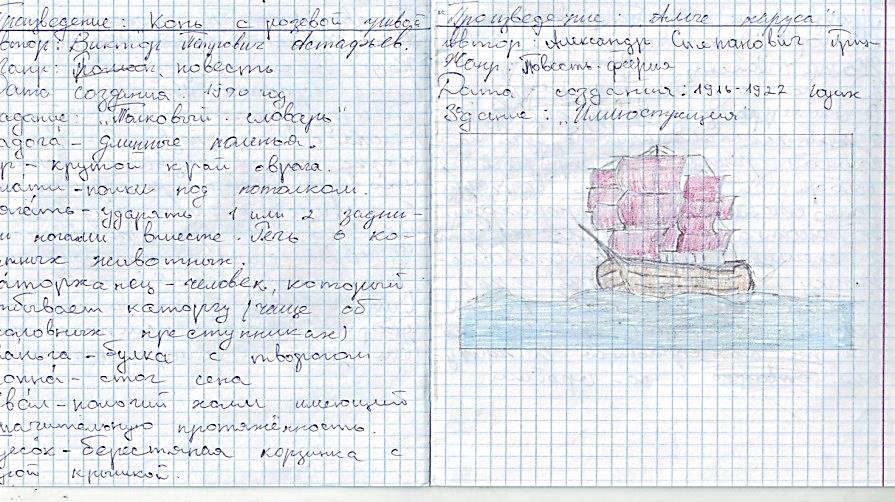 Произведение: "Конь с розовой гривой
втор: Виктор Петрович Астафьев.
анр: повесть
ата создания: 1970 год
адание: „Толковый словарь"
адога - длинные поленья.
р - крутой край оврага.
лати - полки под потолком.
ягать - ударять 1 или 2 задни-
и ногами вместе. Речь о ко-
ытных животных.
аторжанец - человек, который
тбывает каторгу (чаще об
головных преступниках)
аньга - булка с творогом
опна - стог сена
вал - пологий холм имеющий
начительную протяжённость.
уесок - берестяная корзинка с
гой крышкой.
"Произведение: Алые паруса"
Автор: Александр Степанович Грин
Жанр: Повесть-феерия
Дата создания: 1916-1922 годах
Здание: „Иллюстрация"